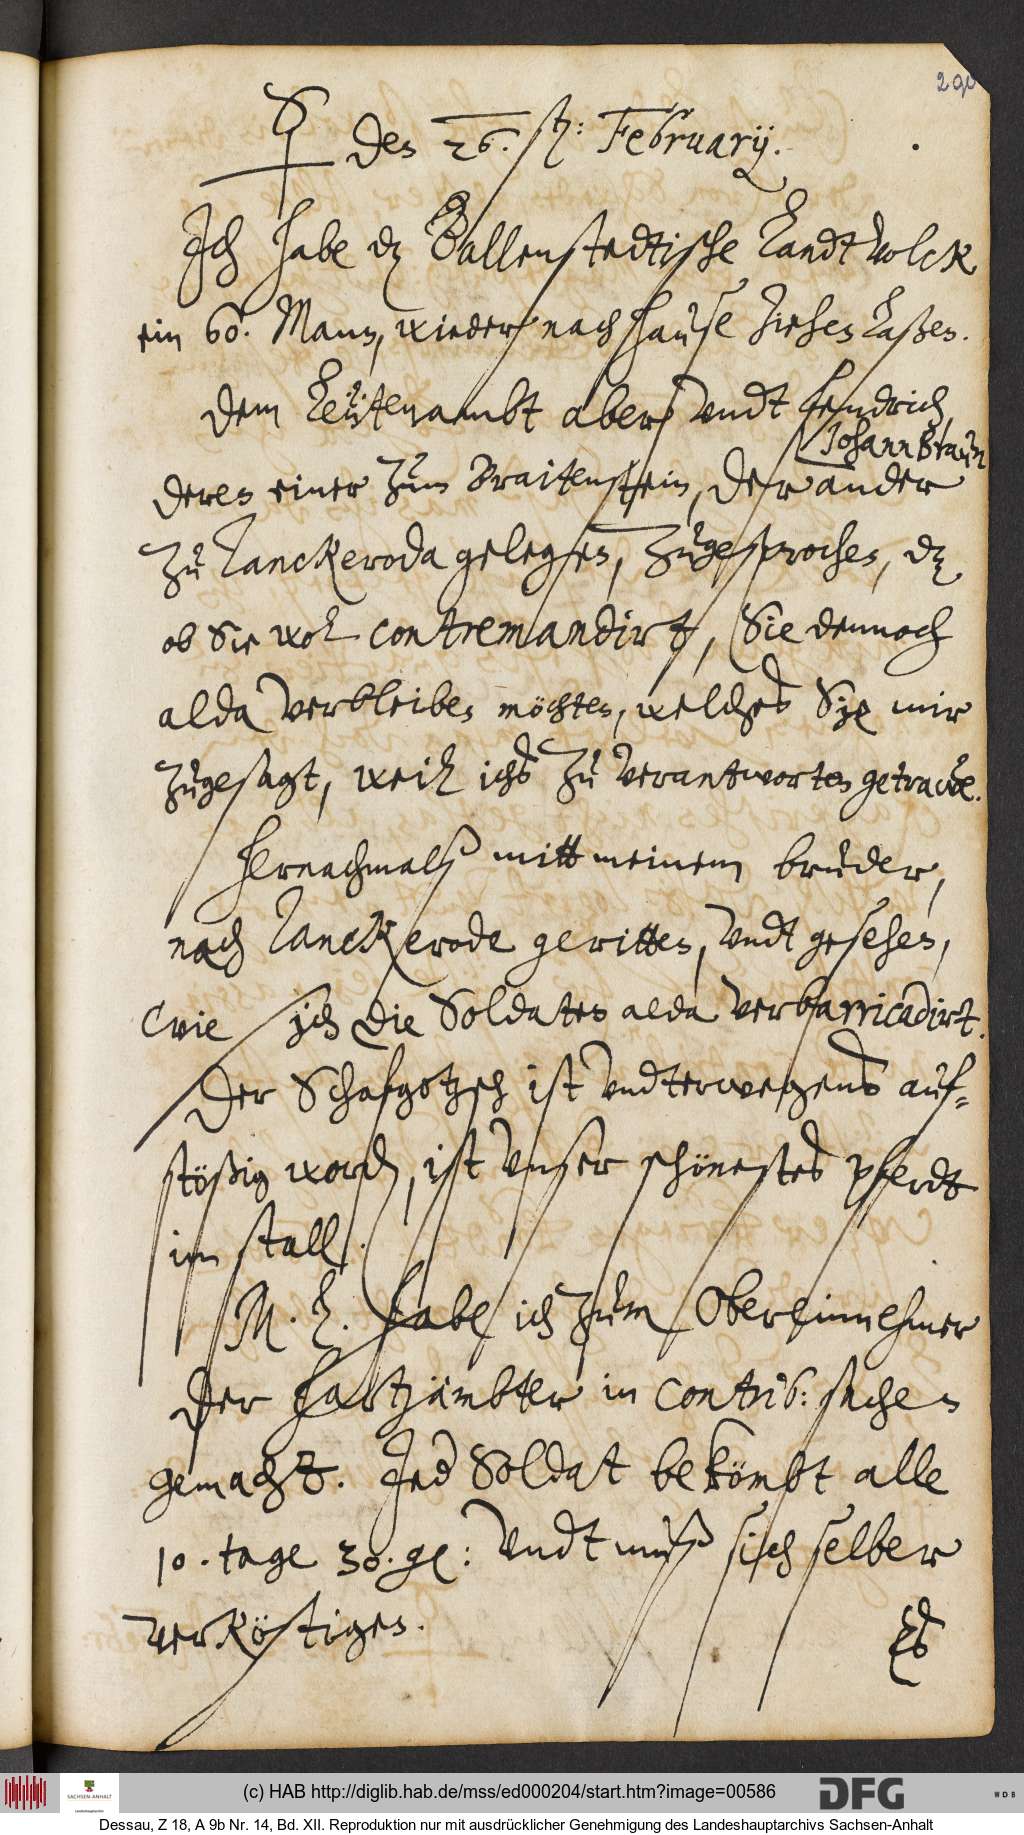 290
☿ den 26. st: Februarij.
Jch habe dz Ballenstedtische Landtvolck
ein 60. Mann, wieder nach hause ziehen laßen.
Dem Leütenambt aber, vndt fendrich,
Johann Braun
deren einer zum Braitenstein, der ander
zu Lanckeroda gelegen, zugesprochen, dz
ob Sie wol contremandirt, Sie dennoch
alda verbleiben möchten, welches Sie mir
zugesagt, weil ichs zu verantworten getrawe.
Hernachmalß mitt meinem bruder,
nach Lanckerode geritten, vndt gesehen,
wie sich die Soldaten alda verbarricadirt.
Der Schafgotzsch ist vndterwegens auf-
stößig word, ist vnser schönestes pferdt
im stall.
M. L. habe ich zum Obereinnehmer
der Hartzämbter in contrib: sachen
gemacht. Jed Soldat bekömbt alle
10. tage 30. gl: vndt muß sich selber
verköstigen.
Es
(c) HAB http://diglib.hab.de/mss/ed000204/start.htm?image=00586
SACHSEN-ANHALT
DFG
WDB
Dessau, Z 18, A 9b Nr. 14, Bd. XII. Reproduktion nur mit ausdrücklicher Genehmigung des Landeshauptarchivs Sachsen-Anhalt